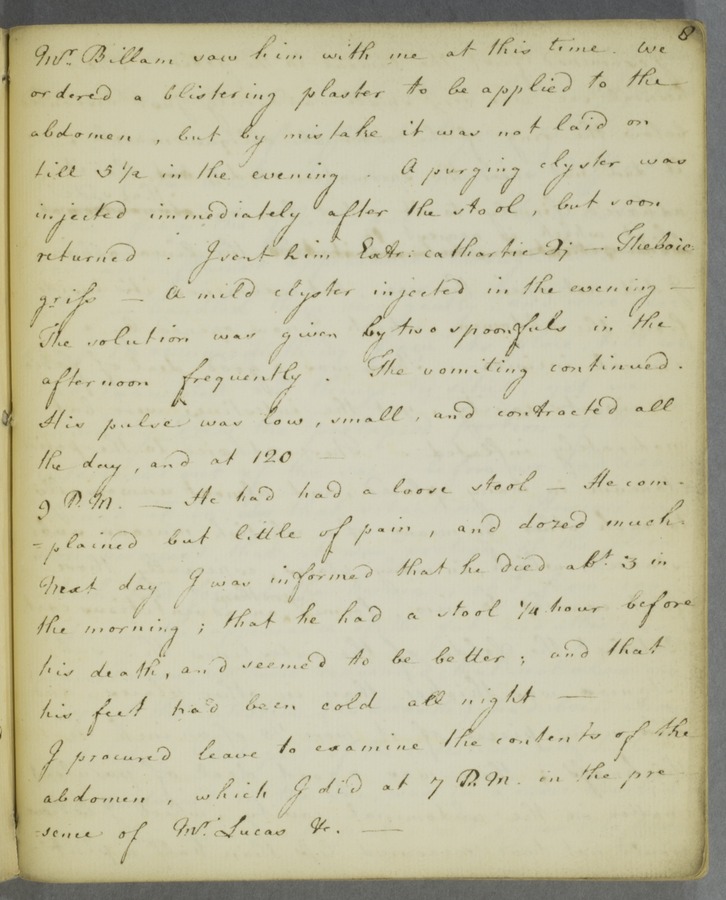 8
Mr. Billam saw him with me at this time. We
ordered a blistering plaster to be applied to the
abdomen, but by mistake it was not laid on
till 5 1/2 in the evening. A purging clyster was
injected immediately after the stool, but soon
returned. I sent him Extr: cathartic Ʒj — Thebaic
gr. iſs — A mild clyster injected in the evening —
The solution was given by two spoonfuls in the
afternoon frequently. The vomiting continued.
His pulse was low, small, and contracted all
the day, and at 120 —
9 P.M. — He had had a loose stool — He com-
=plained but little of pain, and dozed much.
Next day I was informed that he died abt. 3 in
the morning; that he had a stool 1/4 hour before
his death, and seemed to be better; and that
his feet had been cold all night —
I procured leave to examine the contents of the
abdomen, which I did at 7 P.M. in the pre
-sence of Mr. Lucas &c. —